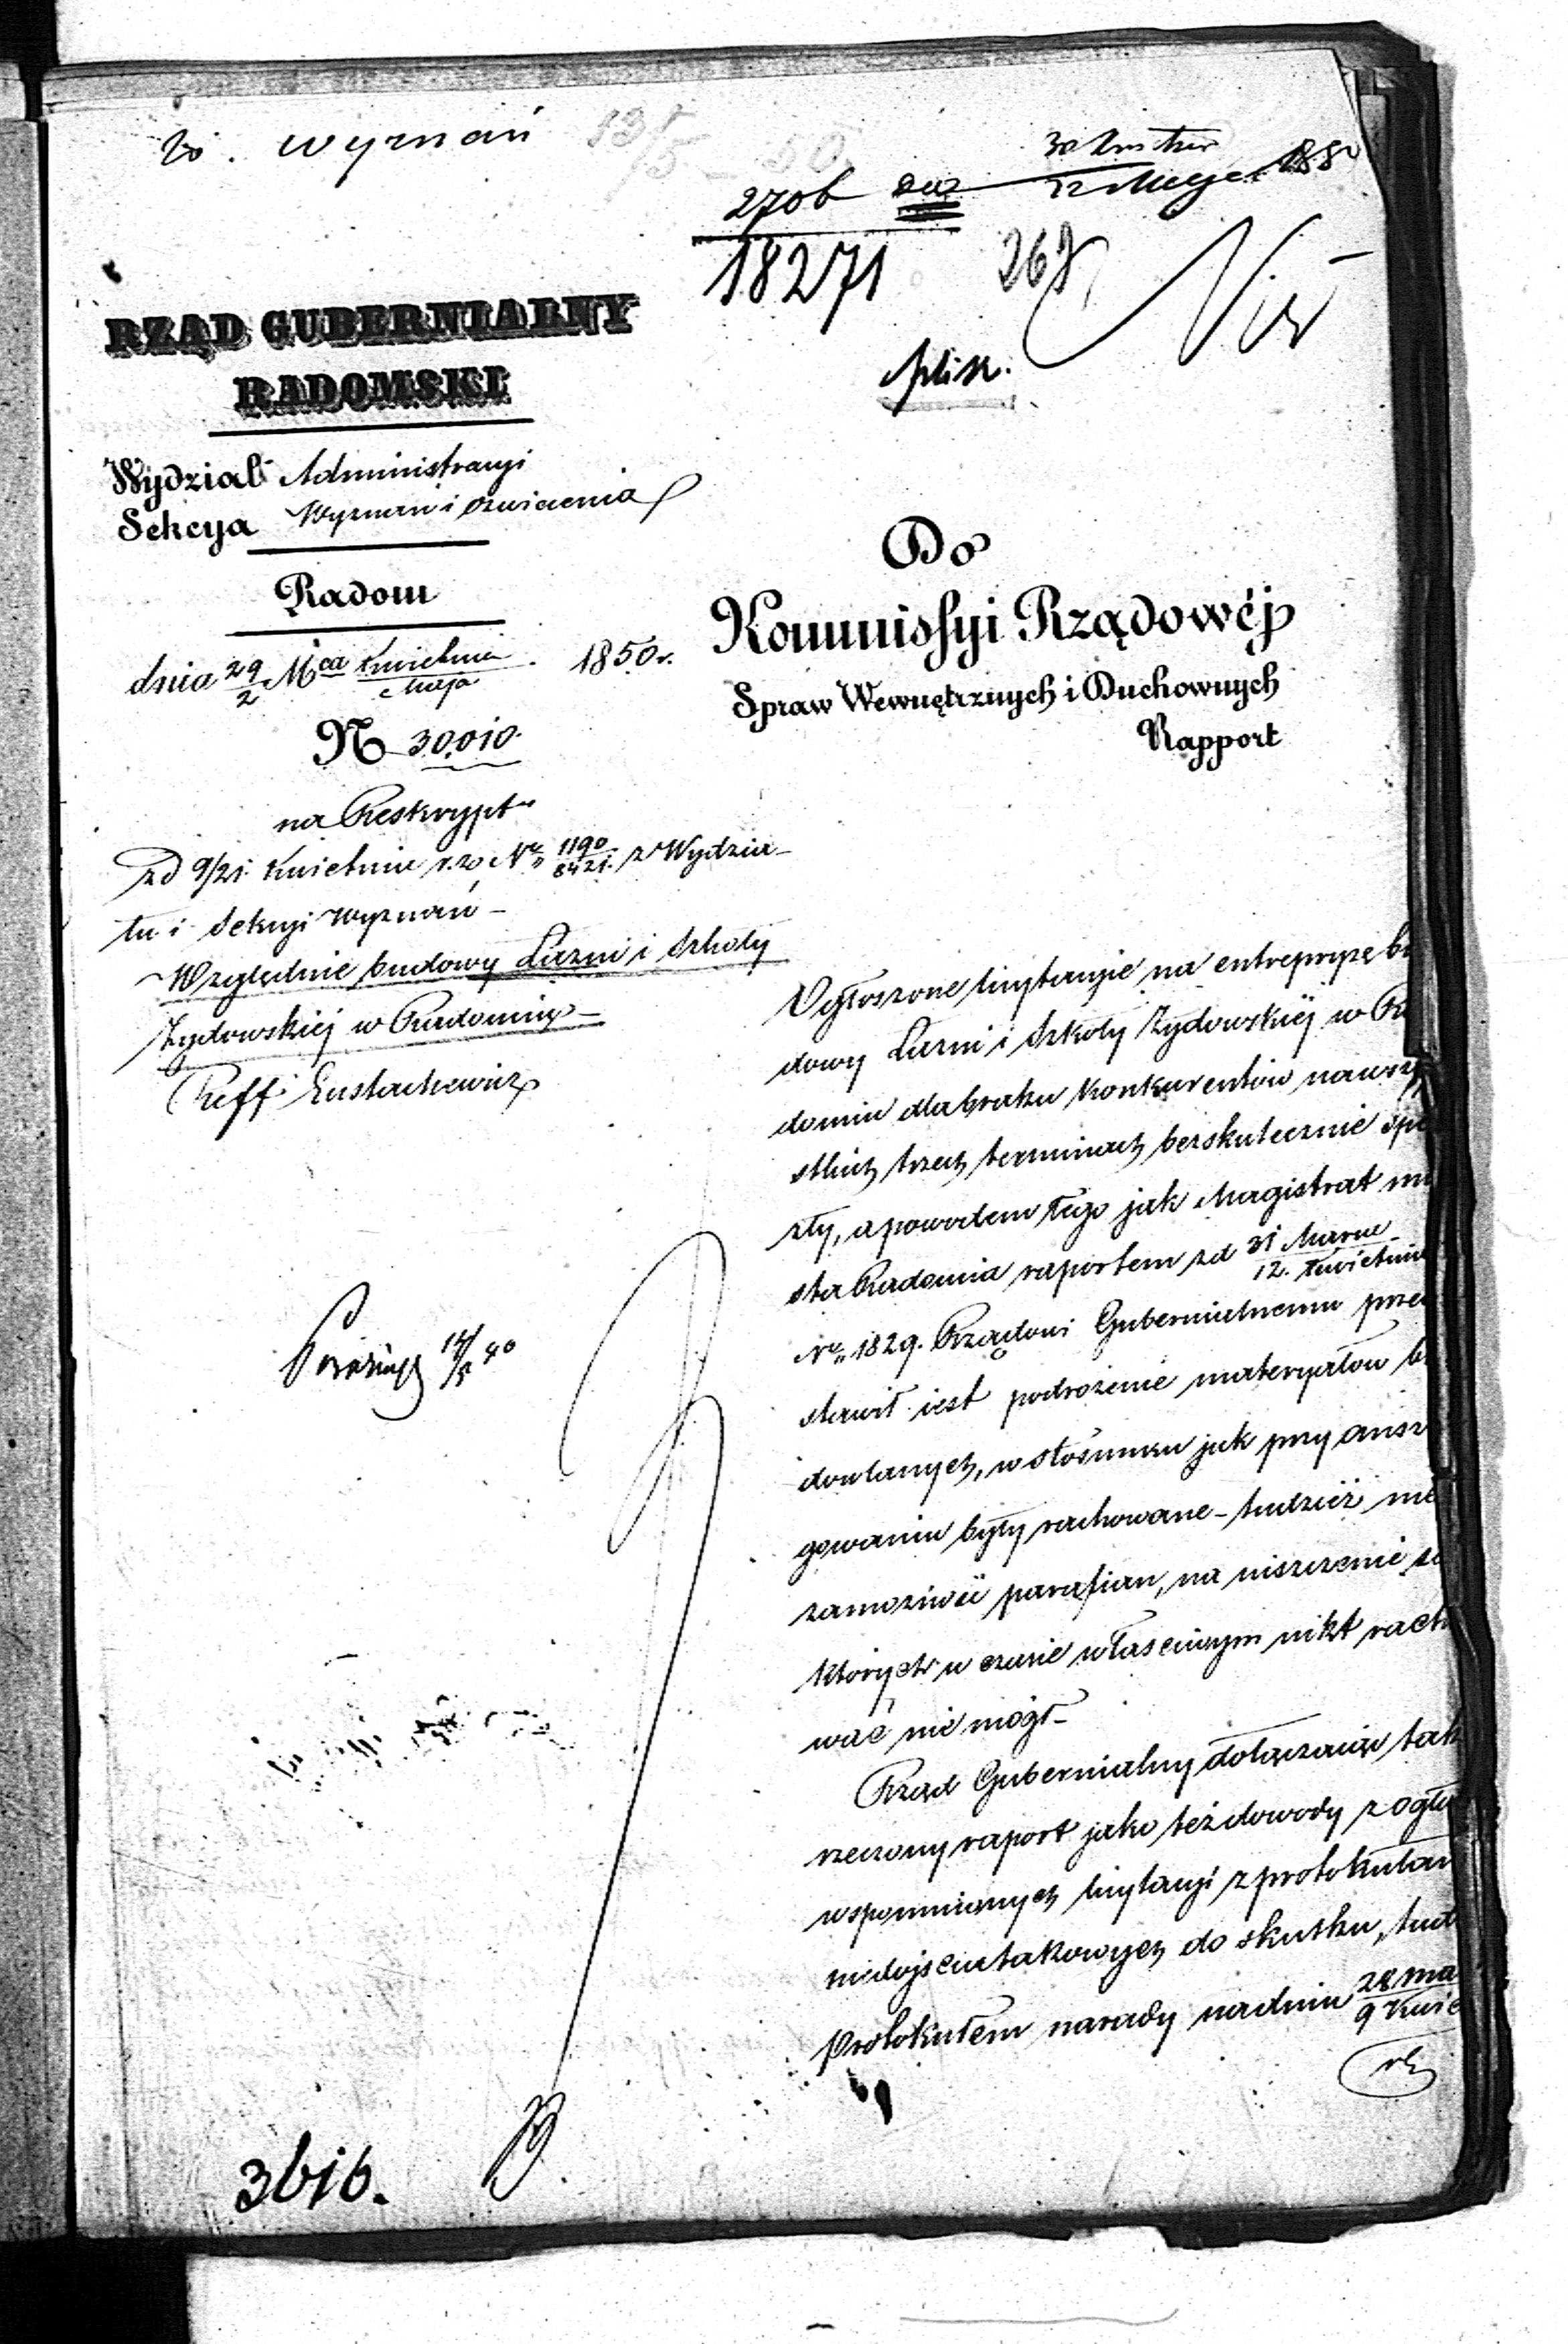 W. Wyznań 13/5 50
2706 dnia 30 Kwietnia / 12 Maja 1850
18271
267
RZĄD GUBERNIALNY
RADOMSKI
Wydział Administracyi
Sekcya Wyznań i Oświecenia
Radom
dnia 29/2 Mca Kwietnia/Maja 1850 r.
N 30,010
na Reskrypt
zd 9/21 Kwietnia r. b. Nr 1190/8421. z Wydzia-
łu i Sekcyi Wyznań
Względnie budowy Łazni i Szkoły
Żydowskiej w Radomiu
Reff Eustachewicz
14/5 50
3616.
Do
Kommissyi Rządowéj
Spraw Wewnętrznych i Duchownych
Rapport
Ogłoszone licytacyie na entrepryzę bu
dowy Łazni i Szkoły Żydowskiéj w Ra
domiu dla braku Konkurentów na wszy
stkich trzech terminach bezskutecznie speł
zły, a powodem tego jak Magistrat mia
sta Radomia raportem zd 31 Marca / 12. Kwietnia
Nr 1829. Rządowi Gubernialnemu przed
stawił iest podrożenie materyałów bu
dowlanych, w stosunku jak przy ansza
gowaniu były rachowane - tudzież nie
zamożność parafian, na uiszczenie się
których w czasie właściwym nikt racho
wać nie mógł -
Rząd Gubernialny dołączaiąc tak
rzeczony raport jako też dowody z ogło
wspomnianych licytacyi z protokułam
niedojścia takowych do skutku, tudz
Protokułem narady na dniu 28 Ma / 9 Kwie